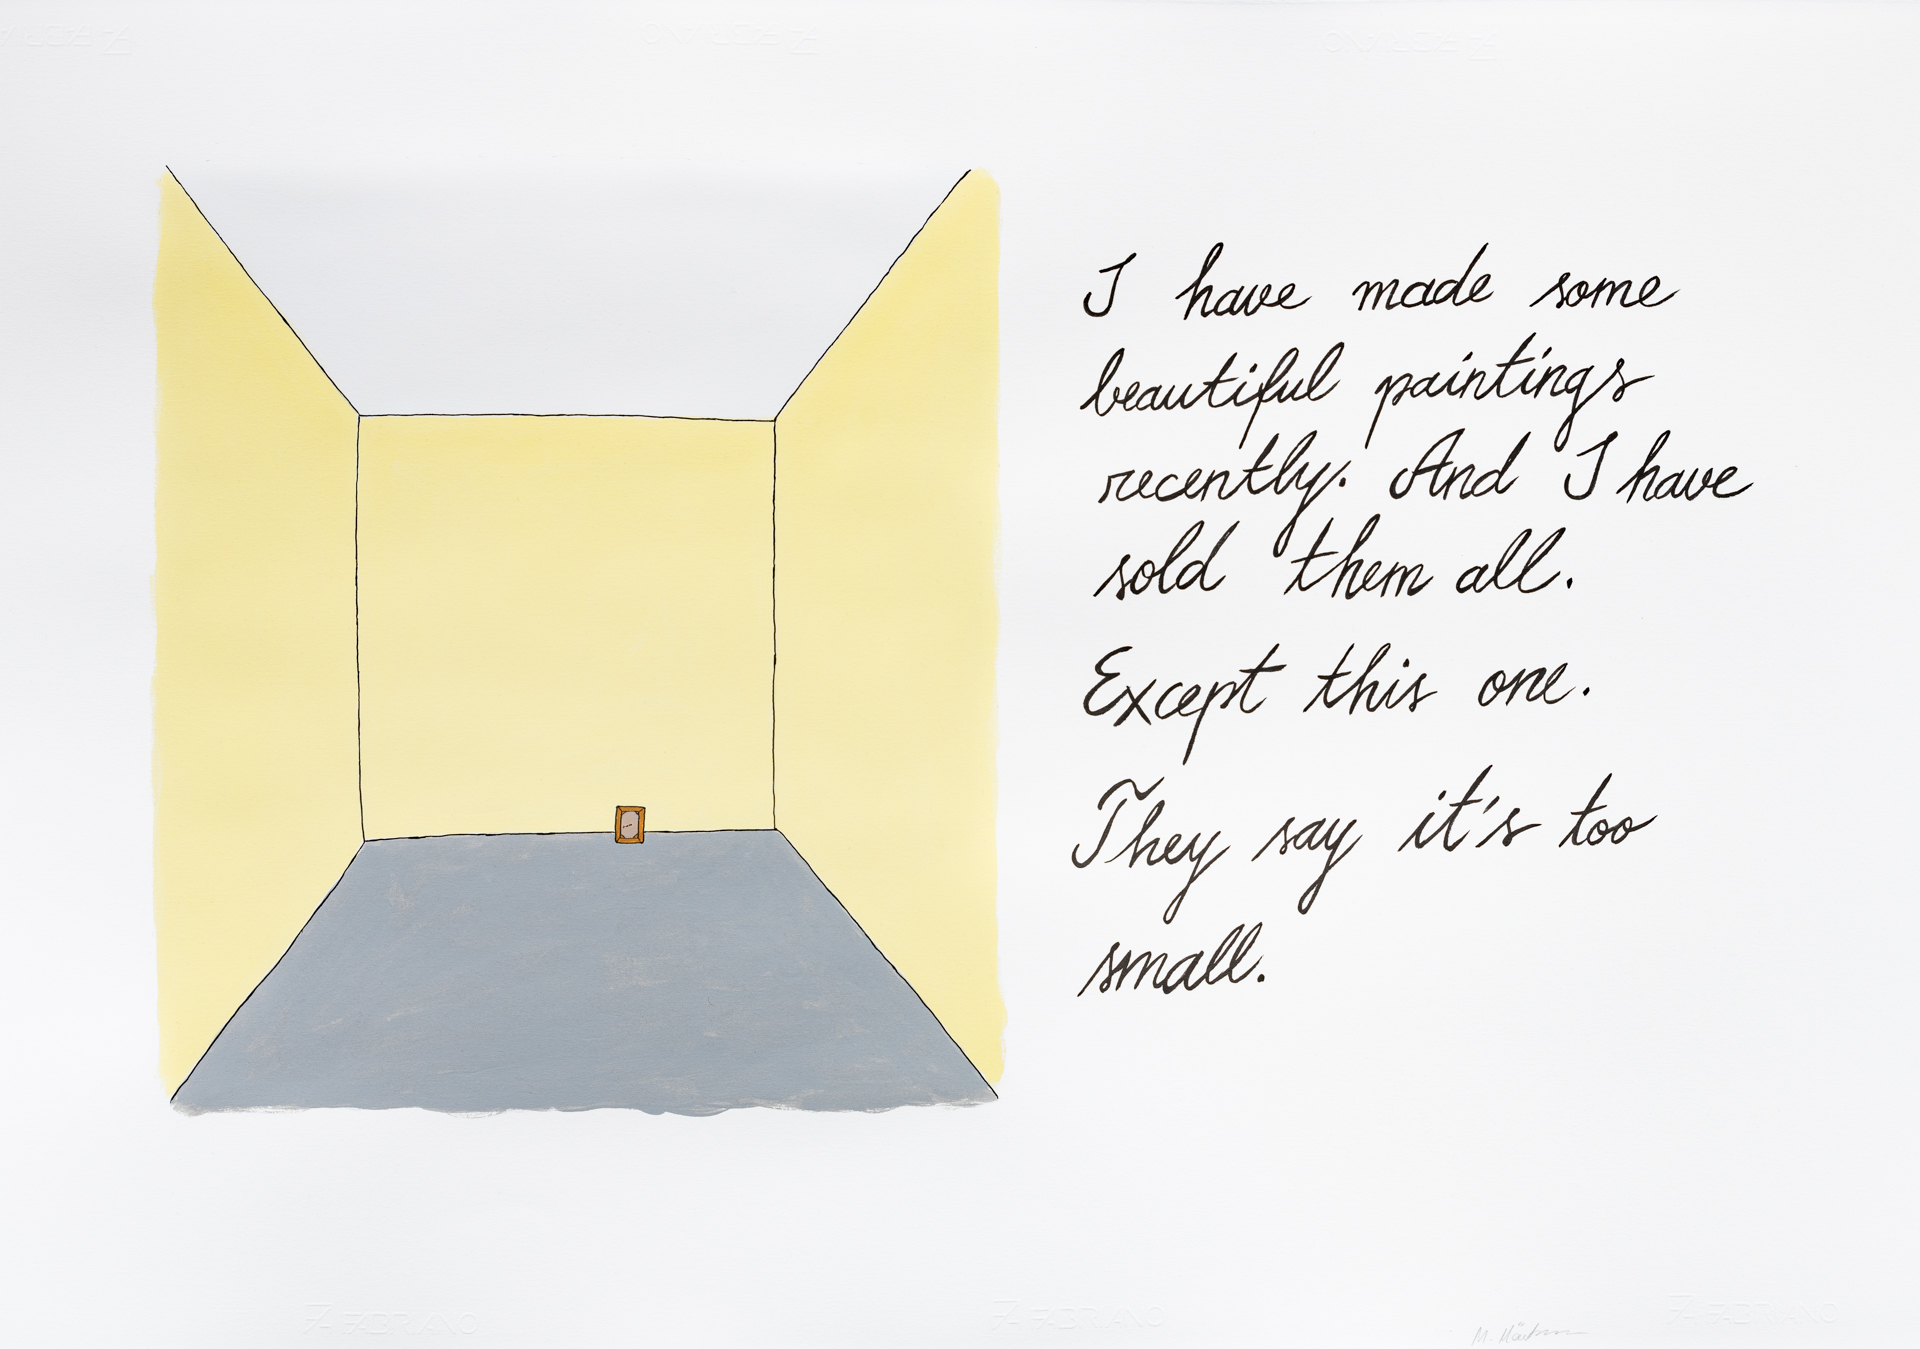 I have made some
beautiful paintings
recently. And I have
sold them all.
Except this one.
They say it's too
small.
FABRIANO
FABRIANO
FABRIANO
M.